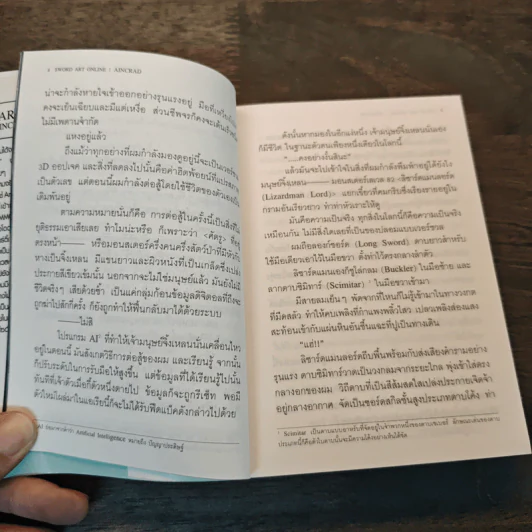 4 SWORD ART ONLINE 1 AINCRAD
น่าจะกำลังหายใจเข้าออกอย่างรุนแรงอยู่ มือที่
คงจะเย็นเฉียบและมีแต่เหงื่อ ส่วนชีพจรก็คงจะเต้นเร็ว
ไม่มีเพดานจำกัด
แหงอยู่แล้ว
ถึงแม้ว่าทุกอย่างที่ผมกำลังมองดูอยู่นี้จะเป็น
3D ออบเจค และสิ่งที่ลดลงไปนั้นคือค่าฮิตพ้อยนท์ที่แปรสภาพ
เป็นตัวเลข แต่ตอนนี้ผมกำลังต่อสู้โดยใช้ชีวิตของตัวเอง
เดิมพันอยู่
ตามความหมายนั้นก็คือ การต่อสู้ในครั้งนี้เป็นสิ่งที่
ยุติธรรมเอาเสียเลย ทำไมน่ะหรือ ก็เพราะว่า <ศัตรู> ที่อยู่
ตรงหน้า—— หรือมอนสเตอร์ครึ่งคนครึ่งสัตว์ป่าที่มีหัวกับ
หางเป็นจิ้งเหลน มีแขนยาวและผิวหนังที่เป็นเกล็ดซึ่งเปล่ง
ประกายสีเขียวเข้มนั้น นอกจากจะไม่ใช่มนุษย์แล้ว มันยังไม่มี
ชีวิตจริงๆ เสียด้วยซ้ำ เป็นแค่กลุ่มก้อนข้อมูลดิจิตอลที่ถึงจะ
ถูกฆ่าไปสักกี่ครั้ง ก็ยังถูกทำให้ฟื้นกลับมาได้ด้วยระบบ
——ไม่สิ
โปรแกรม AI¹ ที่ทำให้เจ้ามนุษย์จิ้งเหลนนั่นเคลื่อนไหว
อยู่ในตอนนี้ มันสังเกตวิธีการต่อสู้ของผม และเรียนรู้ จากนั้น
ก็ปรับระดับในการรับมือให้สูงขึ้น แต่ข้อมูลที่ได้เรียนรู้ไปนั้น
ทันทีที่เจ้าตัวเมื่อกี้ตัวหนึ่งตายไป ข้อมูลก็จะถูกรีเซ็ท พอมี
ตัวใหม่โผล่มาในแอเรียนี้ก็จะไม่ได้รับฟีดแบ็คดังกล่าวไปด้วย
Artificial Intelligence หมายถึง ปัญญาประดิษฐ์
ดังนั้นหากมองในอีกแง่หนึ่ง เจ้ามนุษย์จิ้งเหลนนั่นเอง
ก็มีชีวิต ในฐานะตัวตนเพียงหนึ่งเดียวในโลกนี้
"......คงอย่างงั้นสินะ"
แล้วมันจะไปเข้าใจในสิ่งที่ผมกำลังพึมพำอยู่ได้ยังไง
มนุษย์จิ้งเหลน—— มอนสเตอร์เลเวล 82 <ลิซาร์ดแมนลอร์ด
(Lizardman Lord)> แยกเขี้ยวที่คมกริบซึ่งเรียงรายอยู่ใน
กรามอันเรียวยาว ทำท่าหัวเราะให้ดู
มันคือความเป็นจริง ทุกสิ่งในโลกนี้ก็คือความเป็นจริง
เหมือนกัน ไม่มีสิ่งใดเลยที่เป็นของปลอมแบบเวอร์ชวล
ผมถือลองก์ซอร์ด (Long Sword) ดาบยาวสำหรับ
ใช้มือเดียวเอาไว้ในมือขวา ตั้งท่าไว้ตรงกลางลำตัว
ลิซาร์ดแมนเองก็ชูโล่กลม (Buckler) ในมือซ้าย และ
ลากดาบซิมิทาร์ (Scimitar)¹ ในมือขวาเข้ามา
มีสายลมเย็นๆ พัดจากที่ไหนก็ไม่รู้เข้ามาในทางวงกต
ที่มืดสลัว ทำให้คบเพลิงที่กำแพงพลิ้วไหว เปลวเพลิงส่องแสง
สะท้อนเข้ากับแผ่นหินอันชื้นแฉะที่ปูเป็นทางเดิน
"แฮ่!!"
ลิซาร์ดแมนลอร์ดถีบพื้นพร้อมกับส่งเสียงคำรามอย่าง
รุนแรง ดาบซิมิทาร์วาดเป็นวงกลมจากระยะไกล พุ่งเข้าใส่ตรง
กลางอกของผม วิถีดาบที่เป็นสีส้มสดใสเปล่งประกายเจิดจ้า
อยู่กลางอากาศ จัดเป็นซอร์ดสกิลขั้นสูงประเภทดาบโค้ง ท่า
¹ Scimitar เป็นดาบแบบ